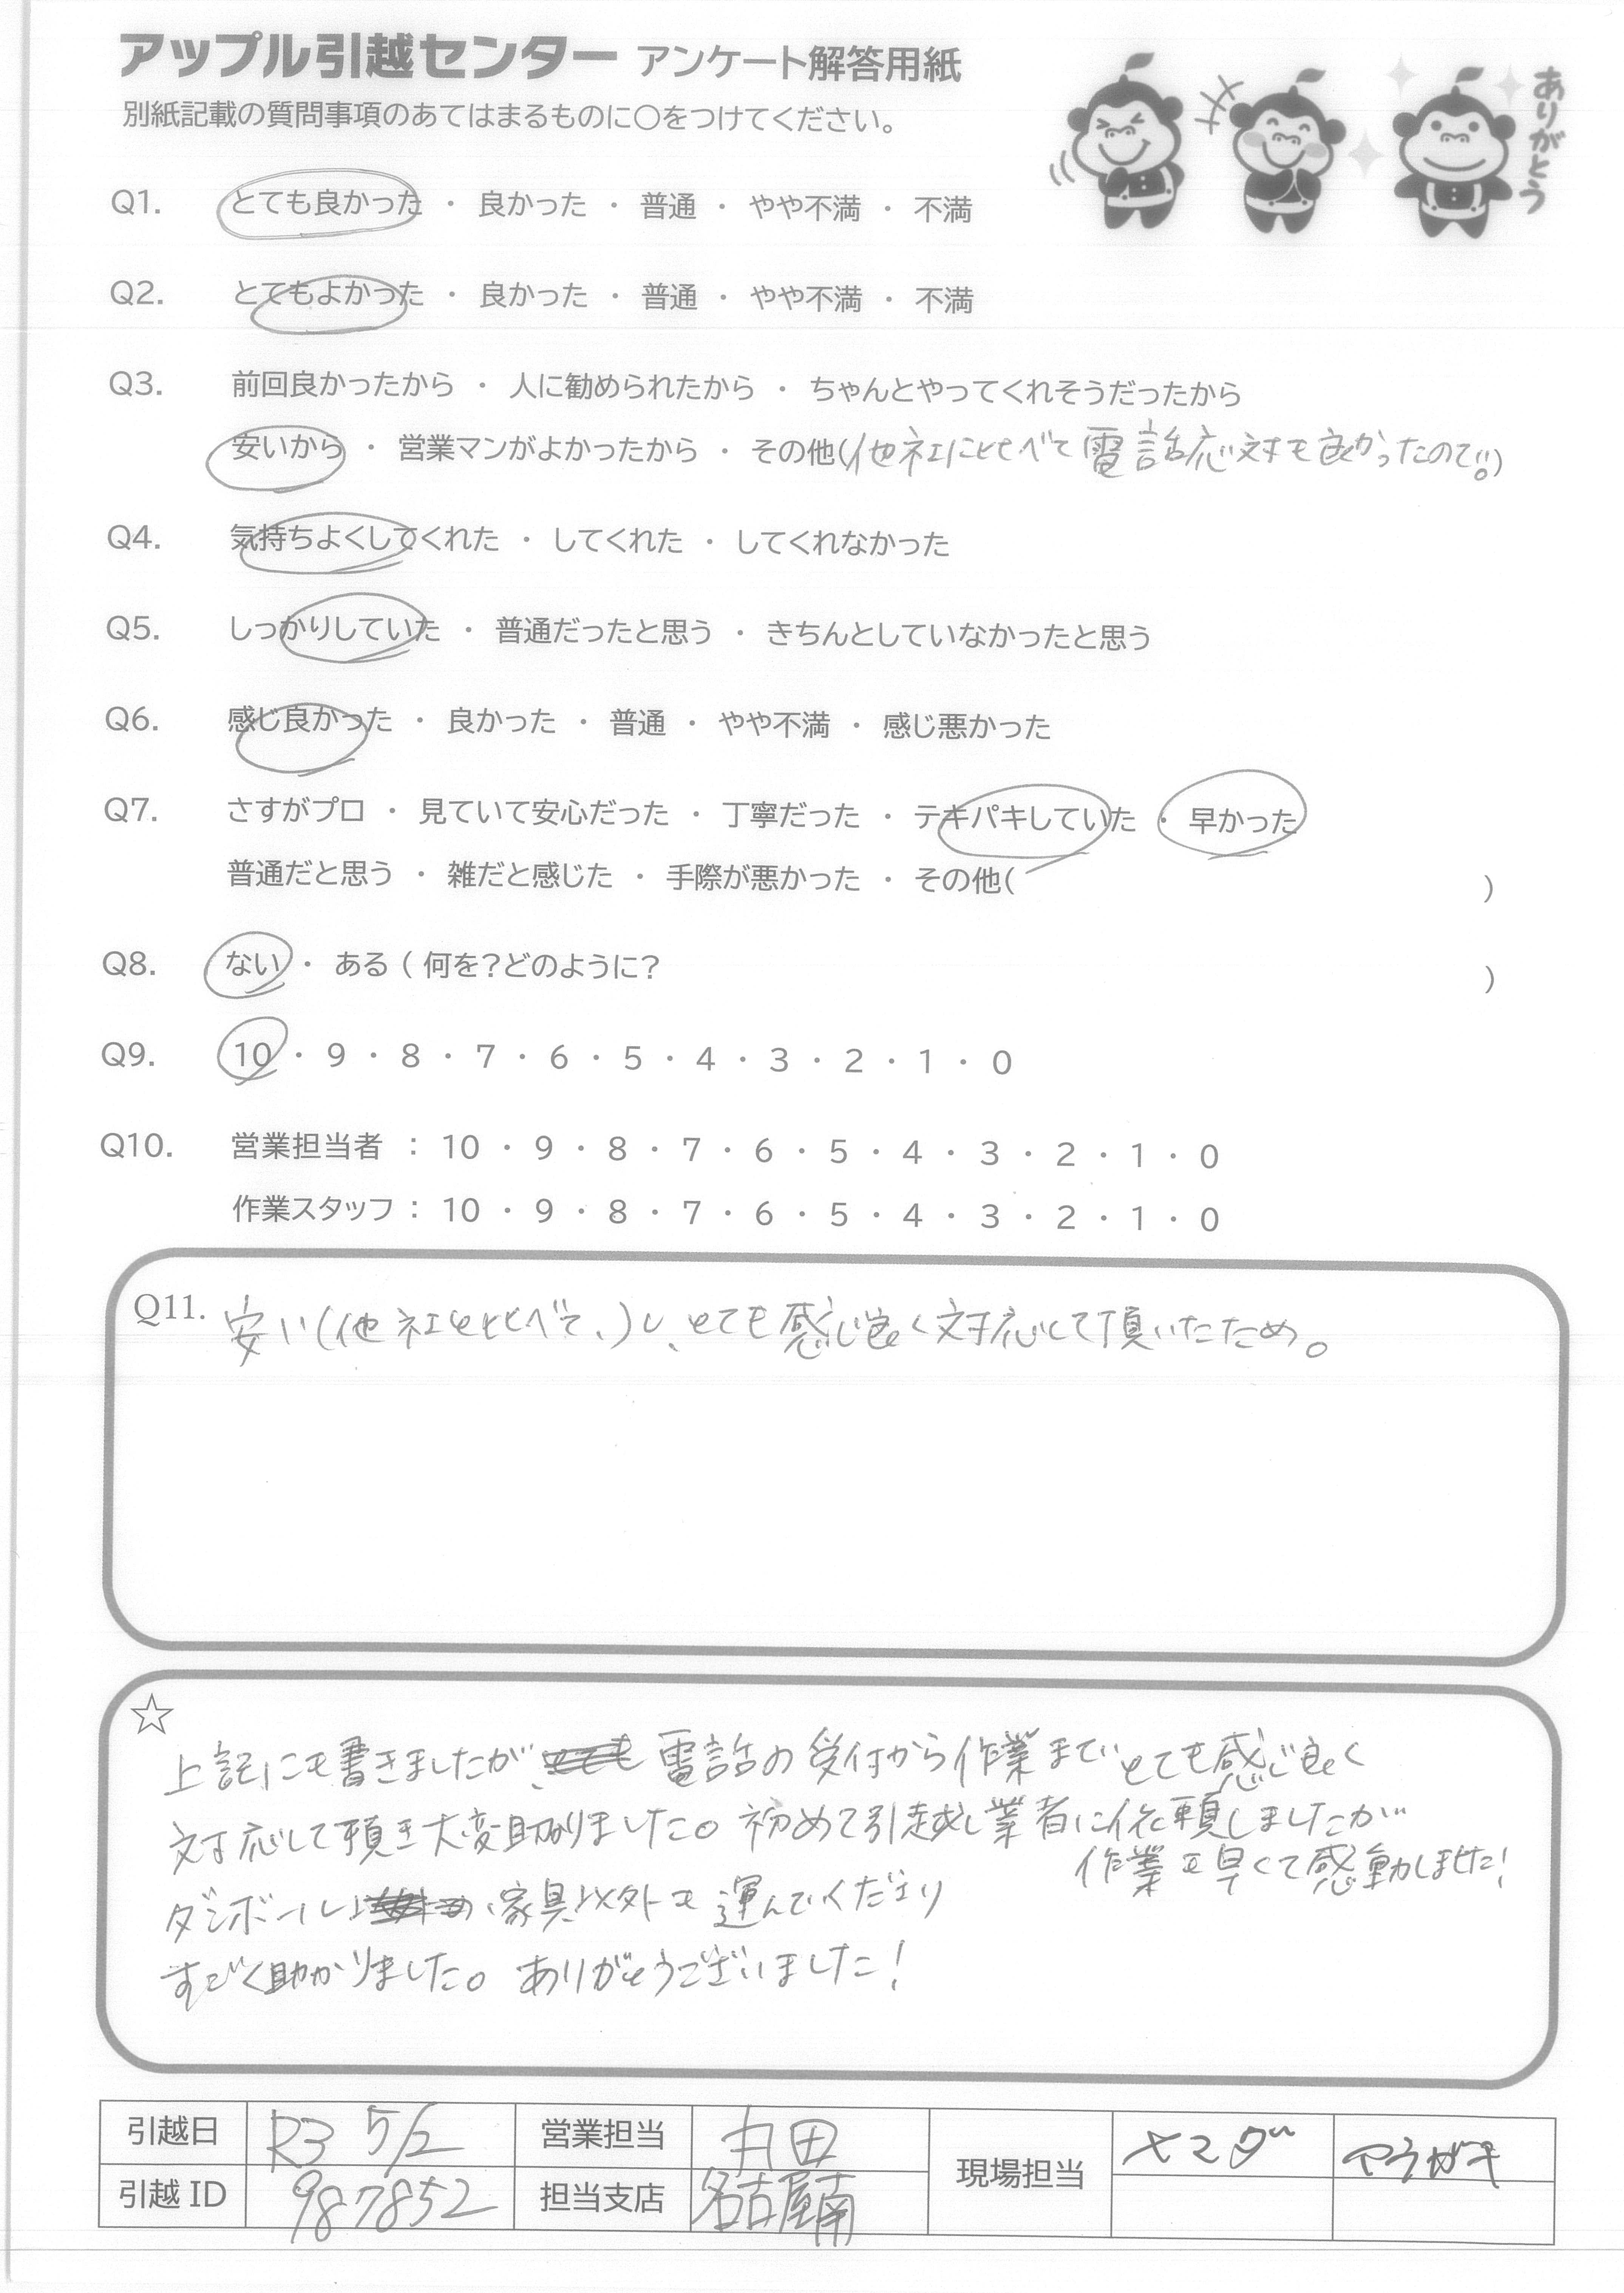 アップル引越センター アンケート解答用紙
別紙記載の質問事項のあてはまるものに○をつけてください。
ありがとう
Q1. とても良かった ・ 良かった ・ 普通 ・ やや不満 ・ 不満
Q2. とてもよかった ・ 良かった ・ 普通 ・ やや不満 ・ 不満
Q3. 前回良かったから ・ 人に勧められたから ・ ちゃんとやってくれそうだったから
安いから ・ 営業マンがよかったから ・ その他(他社にくらべて電話応対も良かったので。)
Q4. 気持ちよくしてくれた ・ してくれた ・ してくれなかった
Q5. しっかりしていた ・ 普通だったと思う ・ きちんとしていなかったと思う
Q6. 感じ良かった ・ 良かった ・ 普通 ・ やや不満 ・ 感じ悪かった
Q7. さすがプロ ・ 見ていて安心だった ・ 丁寧だった ・ テキパキしていた ・ 早かった
普通だと思う ・ 雑だと感じた ・ 手際が悪かった ・ その他( )
Q8. ない ・ ある ( 何を?どのように? )
Q9. 10 ・ 9 ・ 8 ・ 7 ・ 6 ・ 5 ・ 4 ・ 3 ・ 2 ・ 1 ・ 0
Q10. 営業担当者 : 10 ・ 9 ・ 8 ・ 7 ・ 6 ・ 5 ・ 4 ・ 3 ・ 2 ・ 1 ・ 0
作業スタッフ : 10 ・ 9 ・ 8 ・ 7 ・ 6 ・ 5 ・ 4 ・ 3 ・ 2 ・ 1 ・ 0
Q11. 安い(他社と比べて、)し、とても感じ良く対応して頂いたため。
☆
上記にも書きましたが、電話の受付から作業までとても感じ良く
対応して頂き大変助かりました。初めて引越し業者に依頼しましたが
作業も早くて感動しました!
ダンボール、家具以外も運んでくださり
すごく助かりました。ありがとうございました!
引越日 R3 5/2 営業担当 現場担当 ヤマダ
引越ID 987852 担当支店 名古屋南